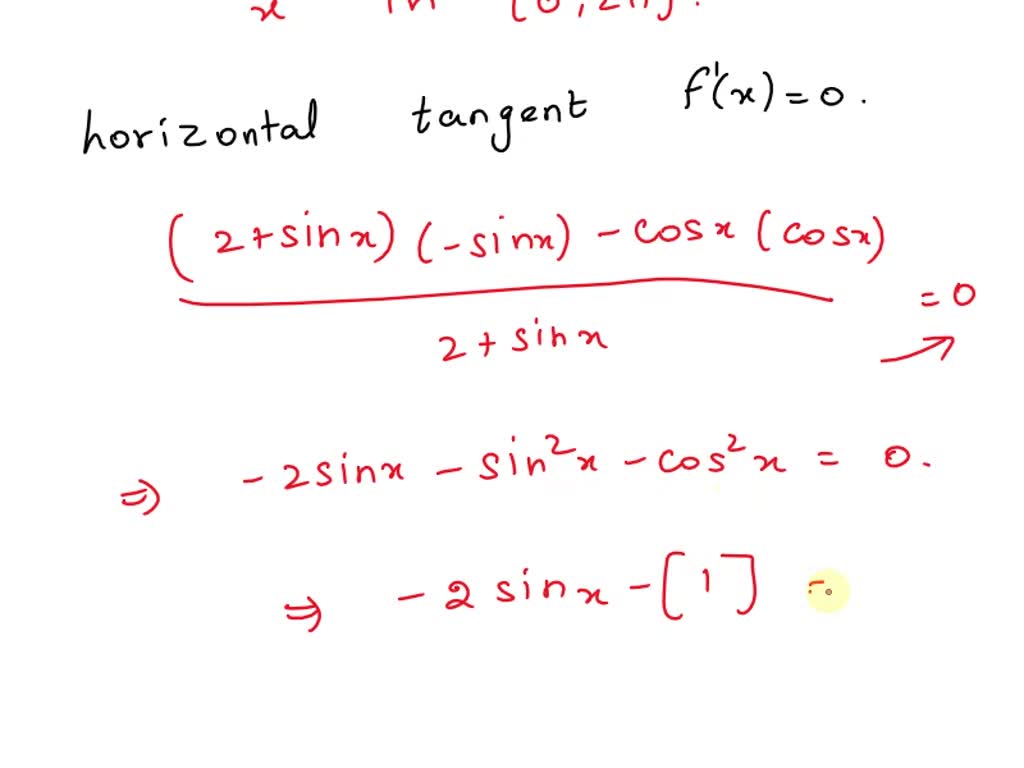 x in [0, 2π].
horizontal tangent f'(x) = 0.
(2 + sin x) (-sin x) - cos x (cos x)
= 0
2 + sin x
⇒ - 2 sin x - sin² x - cos² x = 0.
⇒ - 2 sin x - [1] =